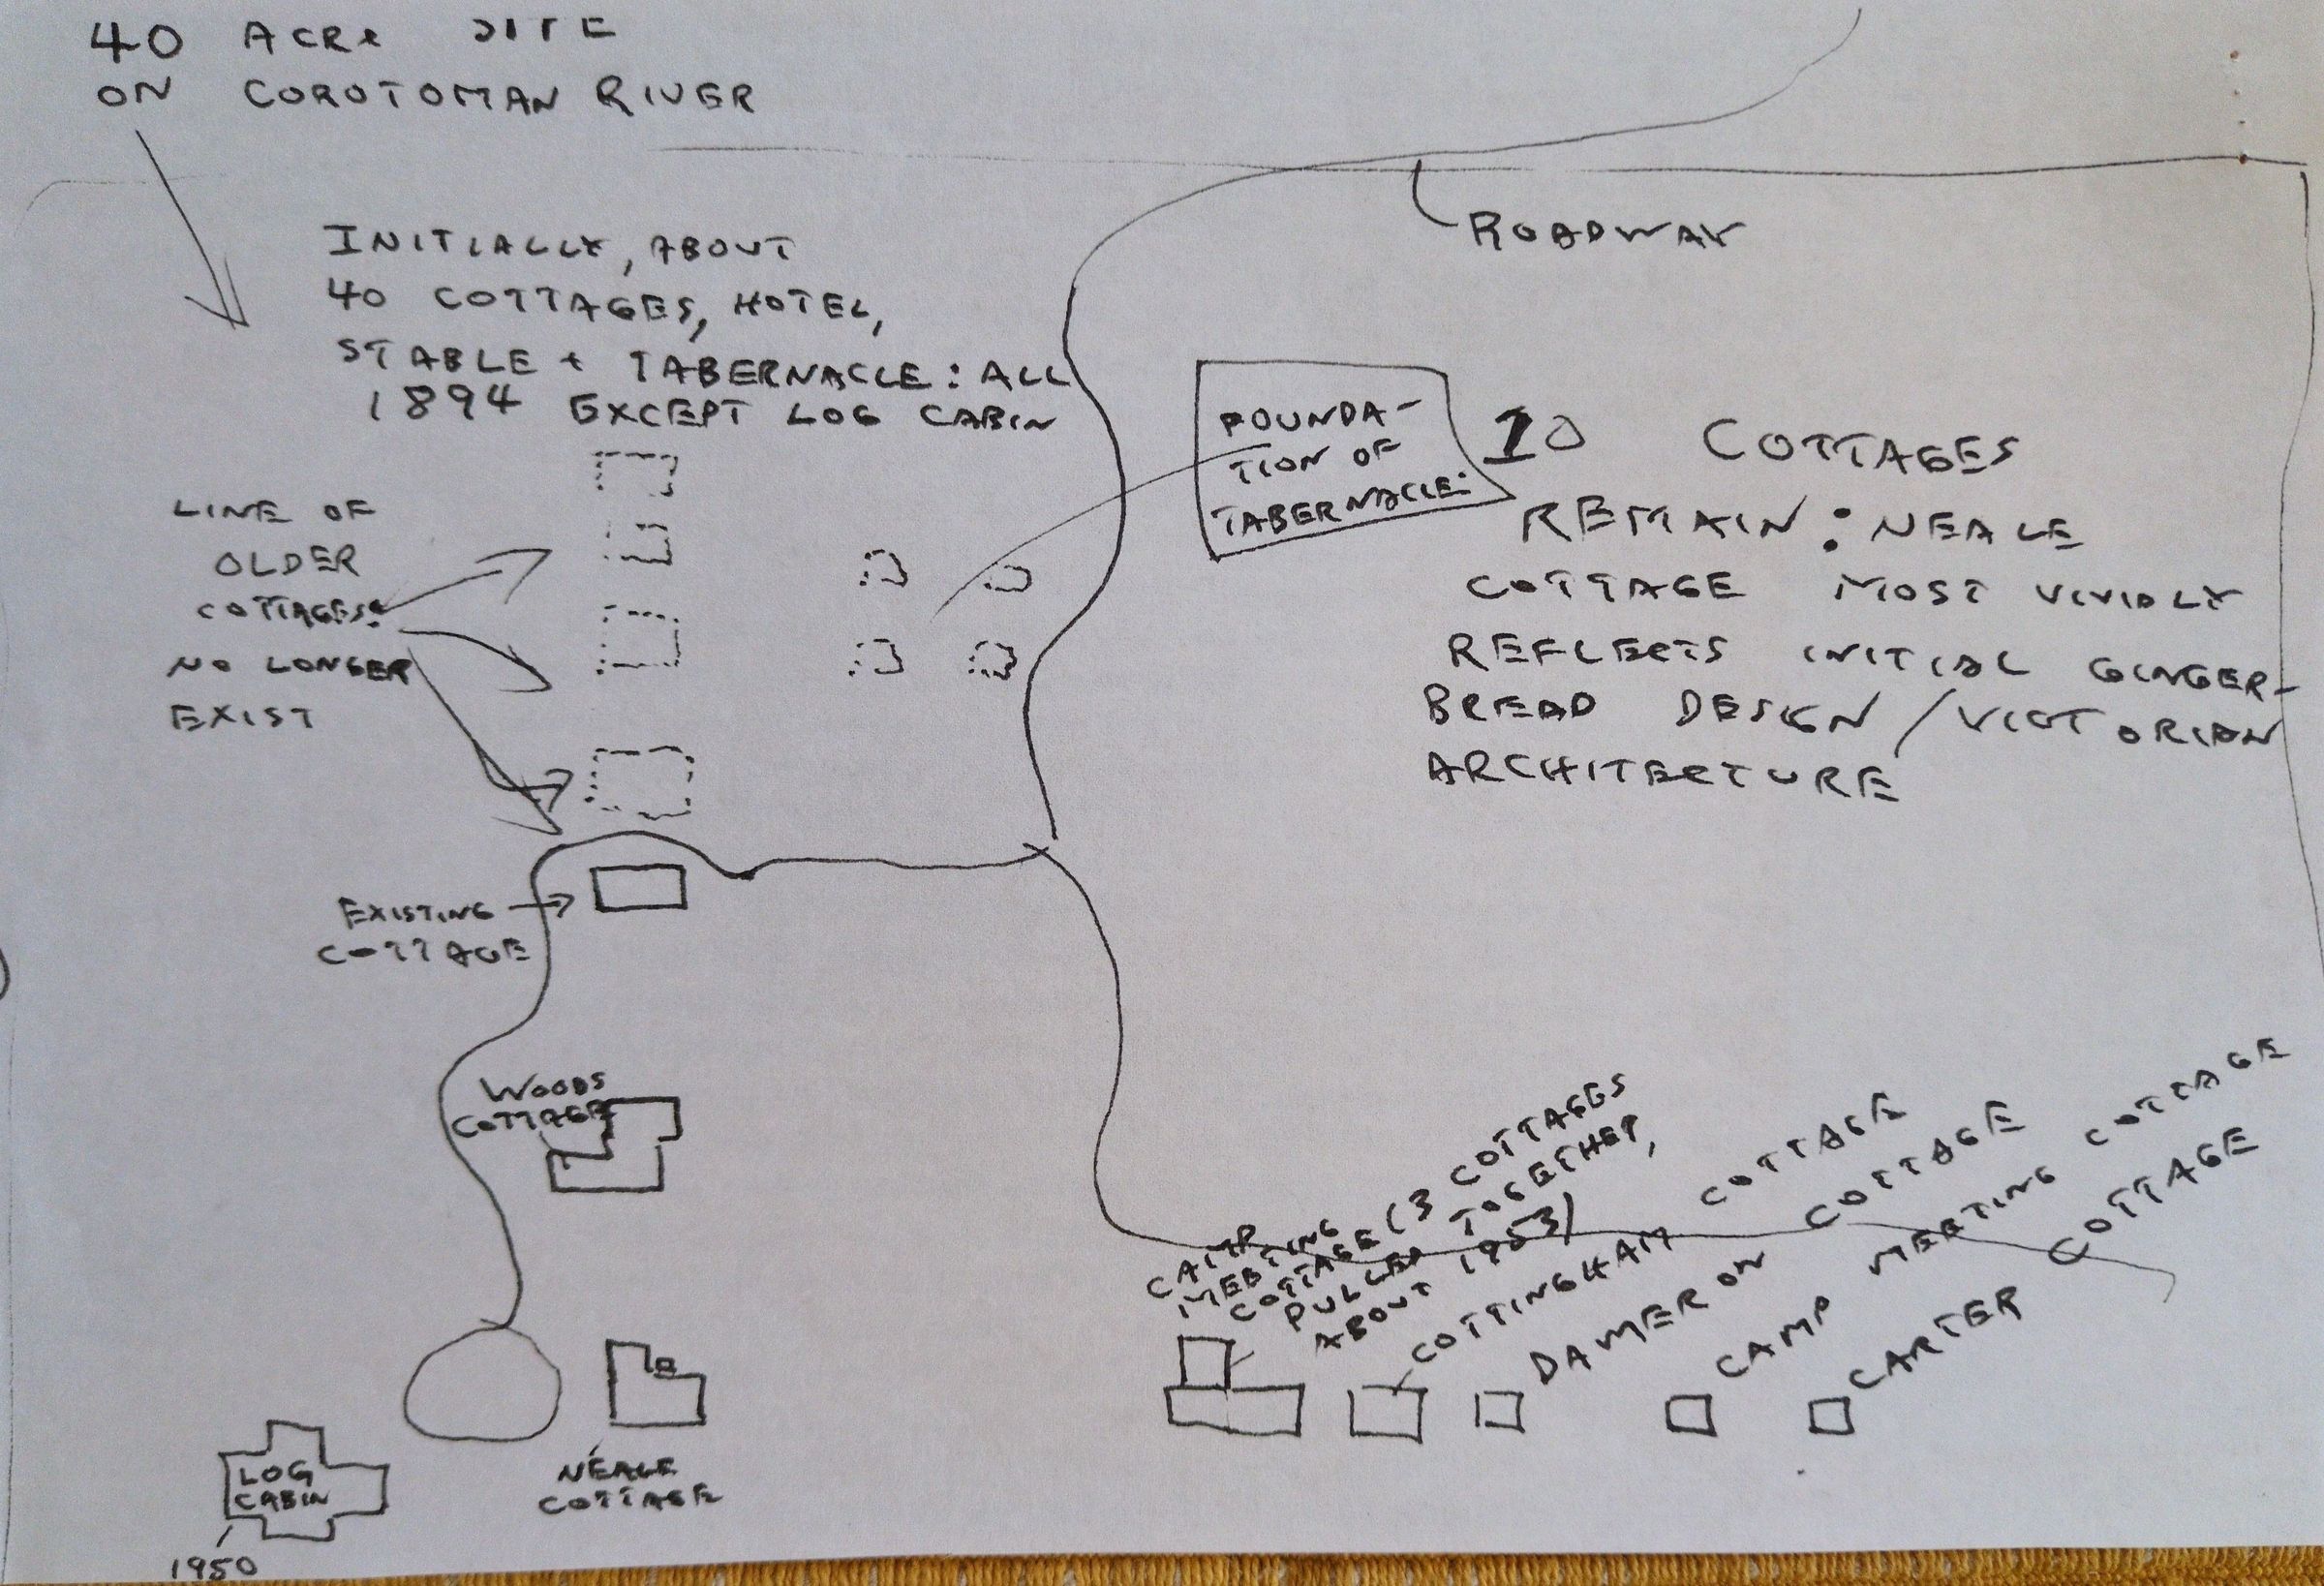 40 ACRE SITE
ON COROTOMAN RIVER
INITIALLY, ABOUT
40 COTTAGES, HOTEL,
STABLE + TABERNACLE: ALL
1894 EXCEPT LOG CABIN
ROADWAY
FOUNDA-
TION OF
TABERNACLE:
10 COTTAGES
REMAIN: NEALE
COTTAGE MOST VIVIDLY
REFLECTS INITIAL GINGER-
BREAD DESIGN / VICTORIAN
ARCHITECTURE
LINE OF
OLDER
COTTAGES:
NO LONGER
EXIST
EXISTING
COTTAGE
WOODS
COTTAGE
CAMP
MEETING
COTTAGE (3 COTTAGES
PULLED TOGETHER,
ABOUT 1953)
COTTINGHAM COTTAGE
DAMERON COTTAGE
CAMP MEETING COTTAGE
CARTER COTTAGE
LOG
CABIN
1950
NEALE
COTTAGE